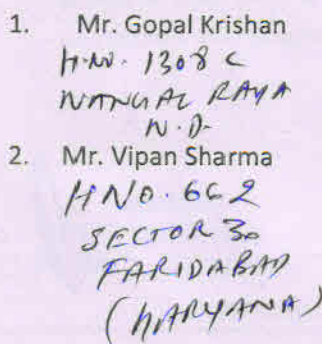 1. Mr. Gopal Krishan
H.NO. 1308 C
NANGAL RAYA
N.D.
2. Mr. Vipan Sharma
HNO. 662
SECTOR 30
FARIDABAD
(HARYANA)